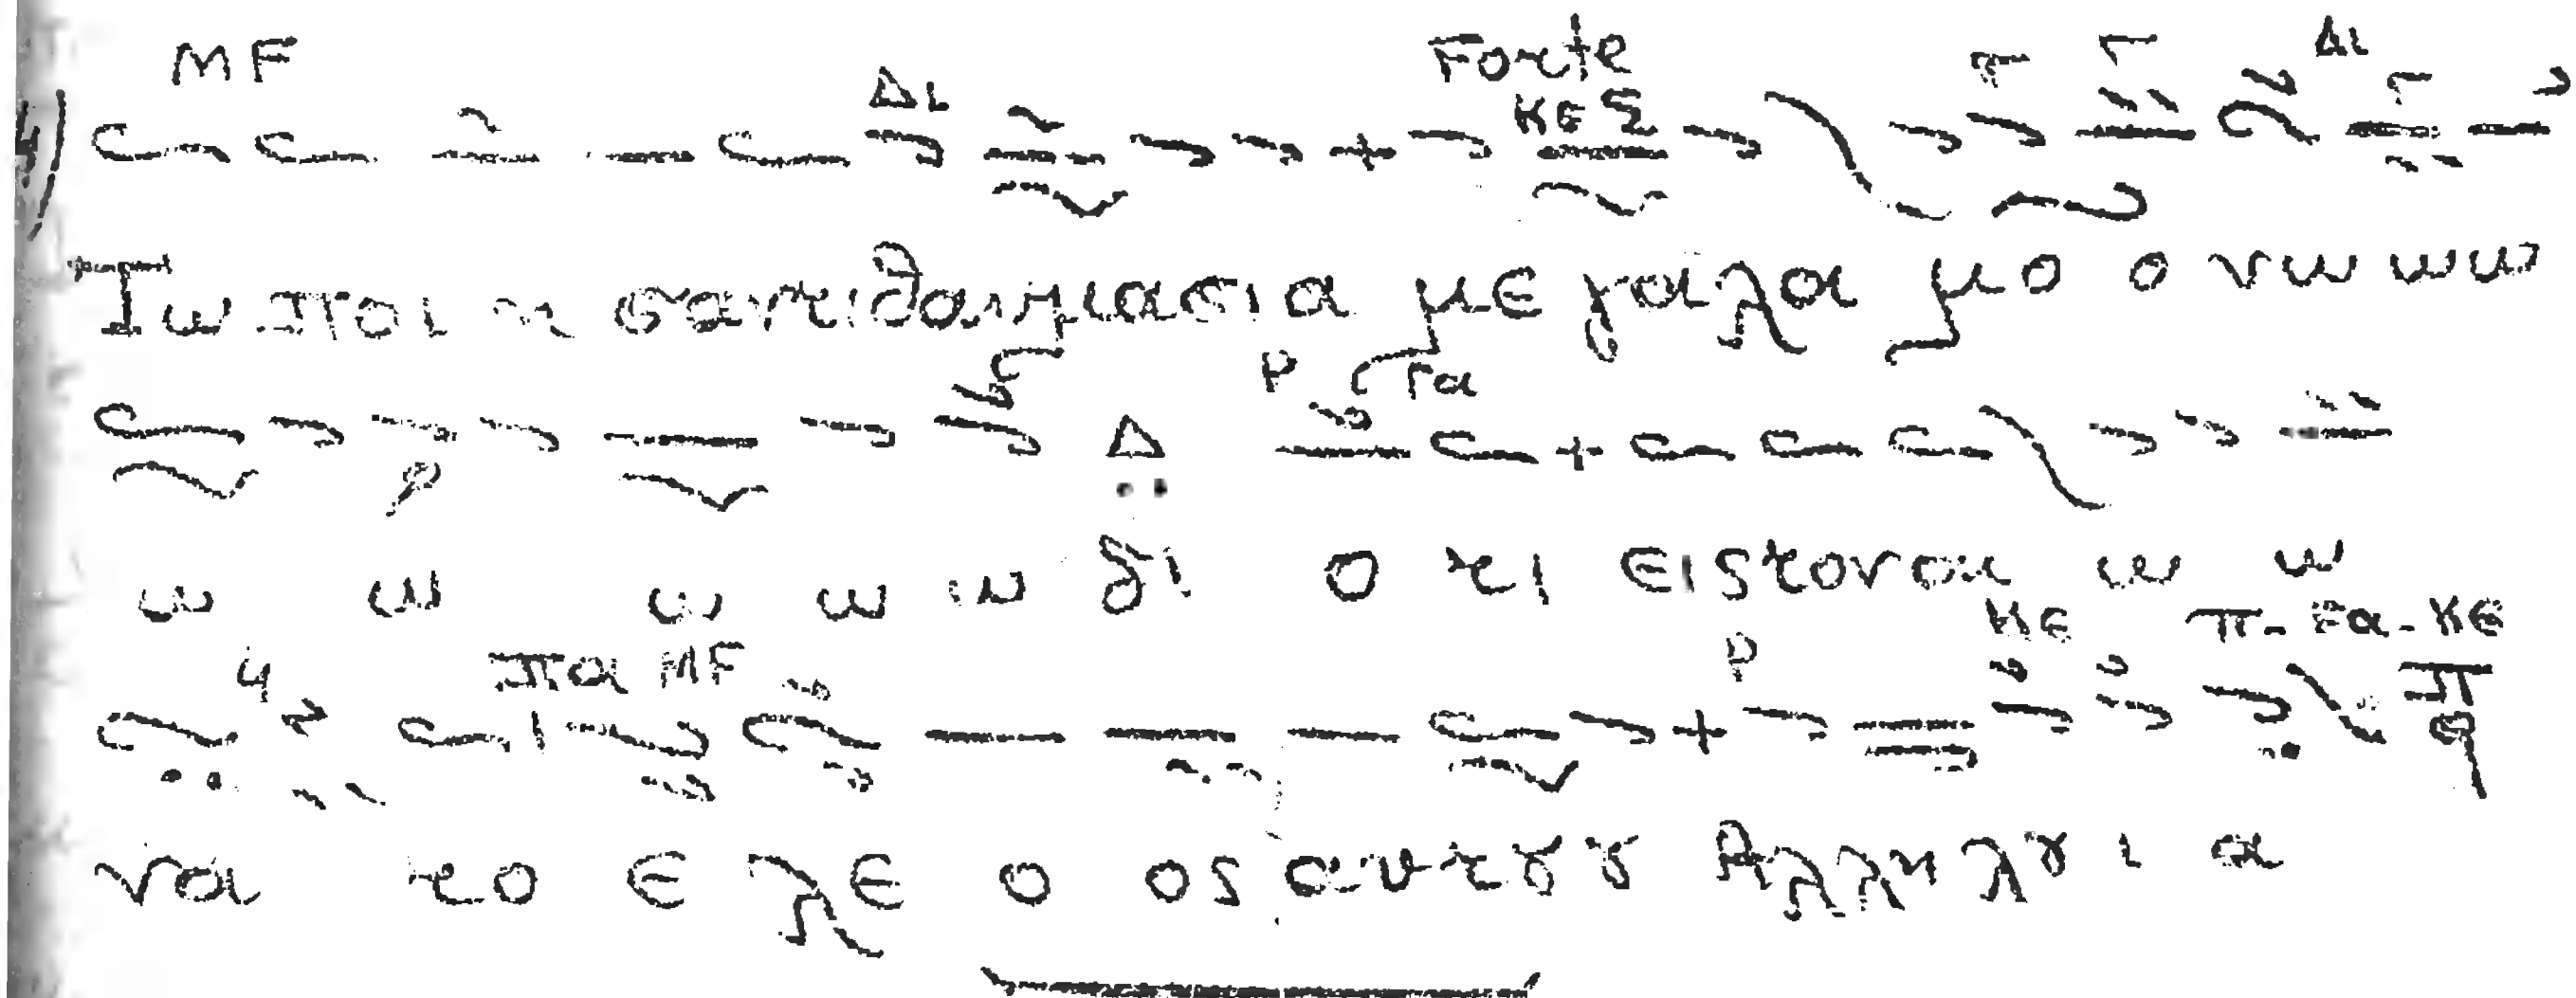 MF Δι Forte ΚΕ Γ Γ Δι
Τω ποι η σαντι θαυμασια με γα λα μο ο νω ω ω
P Γα
ω ω ω ω ω δι ο τι εις τον αι ω ω
4 πα MF P ΚΕ π-Γα-ΚΕ
να το ε λε ο ος αυ τȣ ȣ Αλληλȣ ι α